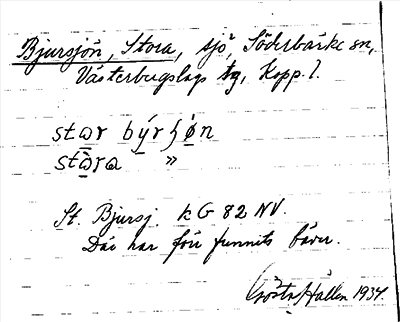 Bjursjön, Stora, sjö, Söderbärke sn,
Västerbergslags tg, Kopp. l.
stωr býrʃø̀n
stὼra "
St. Bjursj. kG 82 NV.
Där har förr funnits bäver.
Gösta Hallén 1934.